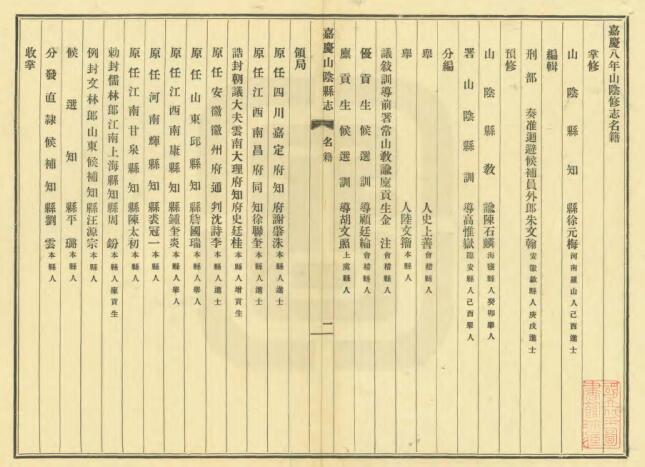 嘉慶八年山陰修志名籍
掌修
山陰縣知縣徐元梅河南羅山人己酉進士
編輯
刑部 奏准迴避候補員外郎朱文翰安徽歙縣人庚戌進士
預修
山陰縣教諭陳石麟海鹽縣人癸卯舉人
署山陰縣訓導高惟嶽臨安縣人己酉舉人
分編
舉人史上善會稽縣人
舉人陸文籀本縣人
議敍訓導前署常山教諭廩貢生金注會稽縣人
優貢生候選訓導顧廷綸會稽縣人
廩貢生候選訓導胡文照上虞縣人
嘉慶山陰縣志 名籍 一
領局
原任四川嘉定府知府謝肇洙本縣人進士
原任江西南昌府同知徐聯奎本縣人進士
誥封朝議大夫雲南大理府知府史廷桂本縣人增貢生
原任安徽徽州府通判沈詩李本縣人進士
原任山東邱縣知縣詹國瑞本縣人舉人
原任江西南康縣知縣鍾奎炎本縣人舉人
原任河南輝縣知縣裘冠一本縣人
原任江南甘泉縣知縣陳太初本縣人
勅封儒林郎江南上海縣知縣周鈖本縣人廩貢生
例封文林郎山東候補知縣汪源宗本縣人
候選知縣平璐本縣人
分發直隸候補知縣劉雲本縣人
收掌